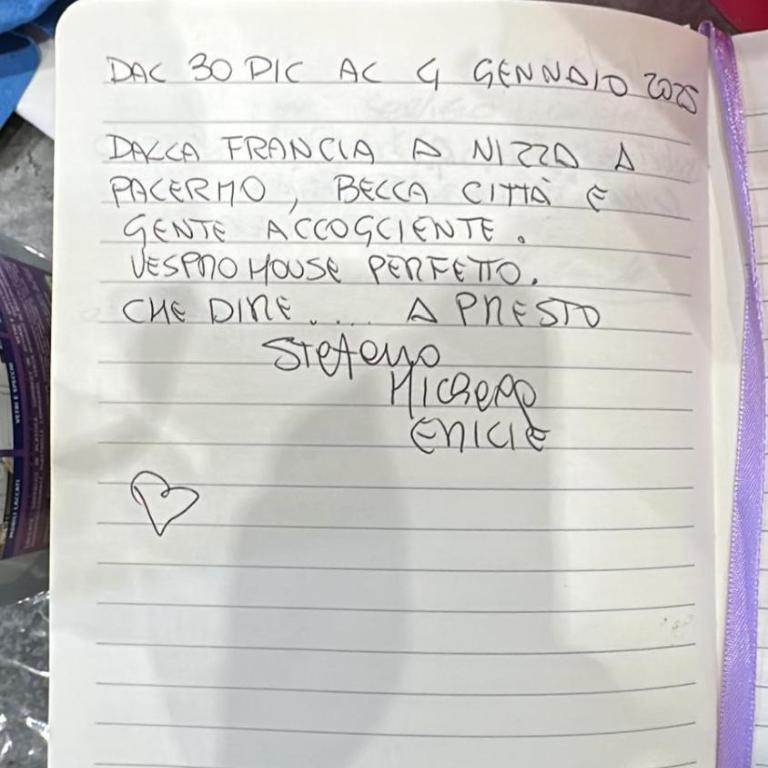 DAL 30 DIC AL 4 GENNAIO 2025
DALLA FRANCIA A NIZZA A
PALERMO, BELLA CITTÀ E
GENTE ACCOGLIENTE.
VESPRO HOUSE PERFETTO.
CHE DIRE.... A PRESTO
Stefano
ENICIE